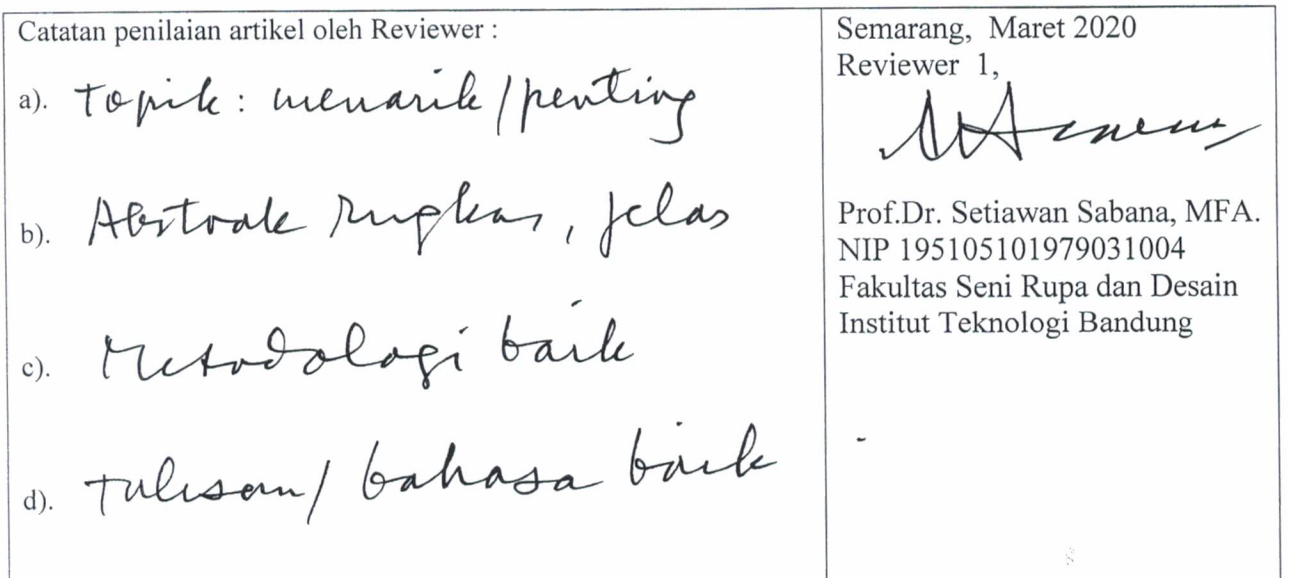 Catatan penilaian artikel oleh Reviewer :
a). Topik : menarik/penting
b). Abstrak ringkas, jelas
c). Metodologi baik
d). Tulisan/ bahasa baik
Semarang, Maret 2020
Reviewer 1,
Prof.Dr. Setiawan Sabana, MFA.
NIP 195105101979031004
Fakultas Seni Rupa dan Desain
Institut Teknologi Bandung